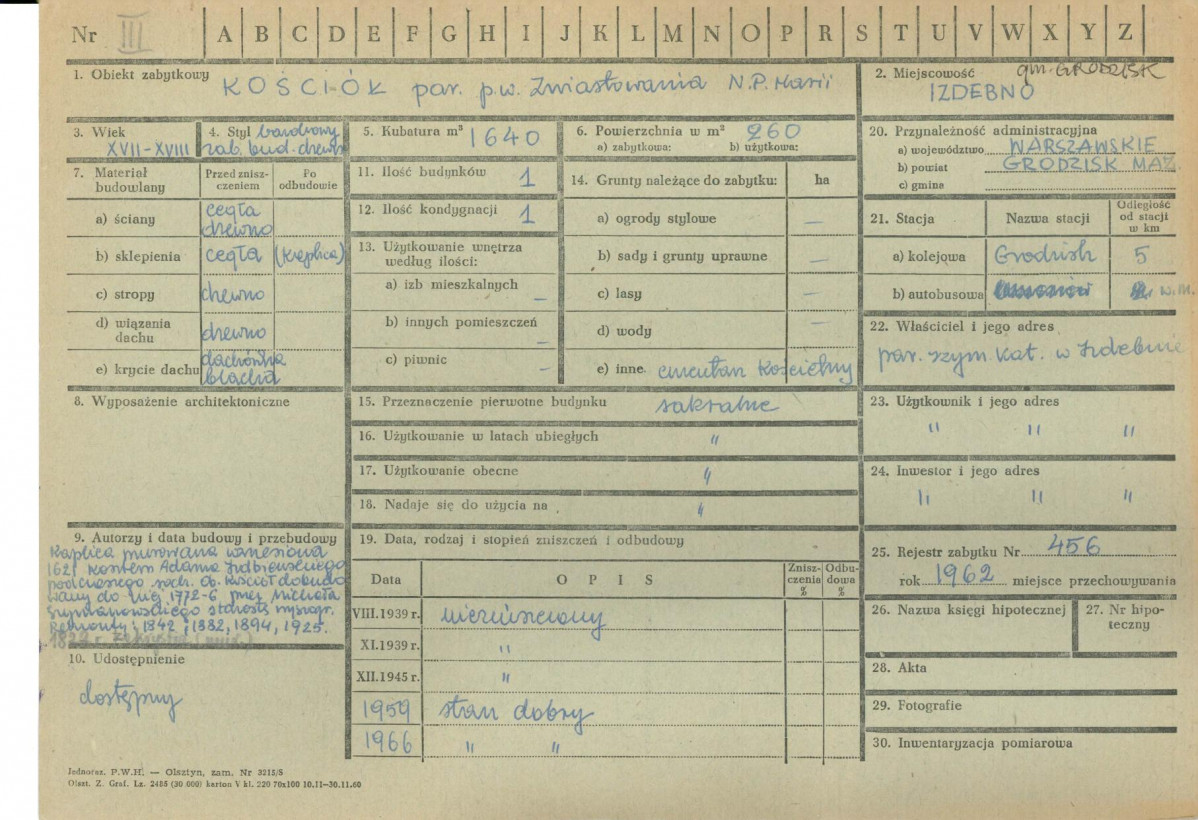 Nr III A B C D E F G H I J K L M N O P R S T U V W X Y Z
1. Obiekt zabytkowy KOŚCIÓŁ par. p.w. Zwiastowania N.P. Marii
2. Miejscowość gm. GRODZISK
IZDEBNO
3. Wiek
XVII-XVIII
4. Styl barokowy
zab. bud. drewn
5. Kubatura m³ 1640
6. Powierzchnia w m² 260
a) zabytkowa: b) użytkowa:
20. Przynależność administracyjna
a) województwo WARSZAWSKIE
b) powiat GRODZISK MAZ.
c) gmina
7. Materiał
budowlany
Przed znisz-
czeniem
Po
odbudowie
a) ściany cegła
drewno
b) sklepienia cegła (kaplica)
c) stropy drewno
d) wiązania
dachu drewno
e) krycie dachu dachówka
blacha
11. Ilość budynków 1
12. Ilość kondygnacji 1
13. Użytkowanie wnętrza
według ilości:
a) izb mieszkalnych –
b) innych pomieszczeń –
c) piwnic –
14. Grunty należące do zabytku: ha
a) ogrody stylowe –
b) sady i grunty uprawne –
c) lasy –
d) wody –
e) inne. cmentarz kościelny
21. Stacja Nazwa stacji Odległość
od stacji
w km
a) kolejowa Grodzisk 5
b) autobusowa w.m.
22. Właściciel i jego adres
par. rzym. kat. w Izdebnie
8. Wyposażenie architektoniczne
15. Przeznaczenie pierwotne budynku sakralne
16. Użytkowanie w latach ubiegłych "
17. Użytkowanie obecne "
18. Nadaje się do użycia na "
23. Użytkownik i jego adres
" " "
24. Inwestor i jego adres
" " "
9. Autorzy i data budowy i przebudowy
Kaplica murowana wzniesiona
162 kosztem Adama
podczaszego soch. Ob. kościół dobudo
wany do niej 1772-6 przez Michała
starostę wyszogr.
Remonty: 1842, 1882, 1894, 1925.
1822 r. zakrystia
10. Udostępnienie
dostępny
19. Data, rodzaj i stopień zniszczeń i odbudowy
Data OPIS Znisz-
czenia
% Odbu-
dowa
%
VIII.1939 r. niezniszczony
XI.1939 r. "
XII.1945 r. "
1959 stan dobry
1966 " "
25. Rejestr zabytku Nr 456
rok 1962 miejsce przechowywania
26. Nazwa księgi hipotecznej
27. Nr hipo-
teczny
28. Akta
29. Fotografie
30. Inwentaryzacja pomiarowa
Jednoraz. P.W.H. — Olsztyn, zam. Nr 3215/S
Olszt. Z. Graf. Lz. 2485 (30 000) karton V kl. 220 70x100 10.11—30.11.60